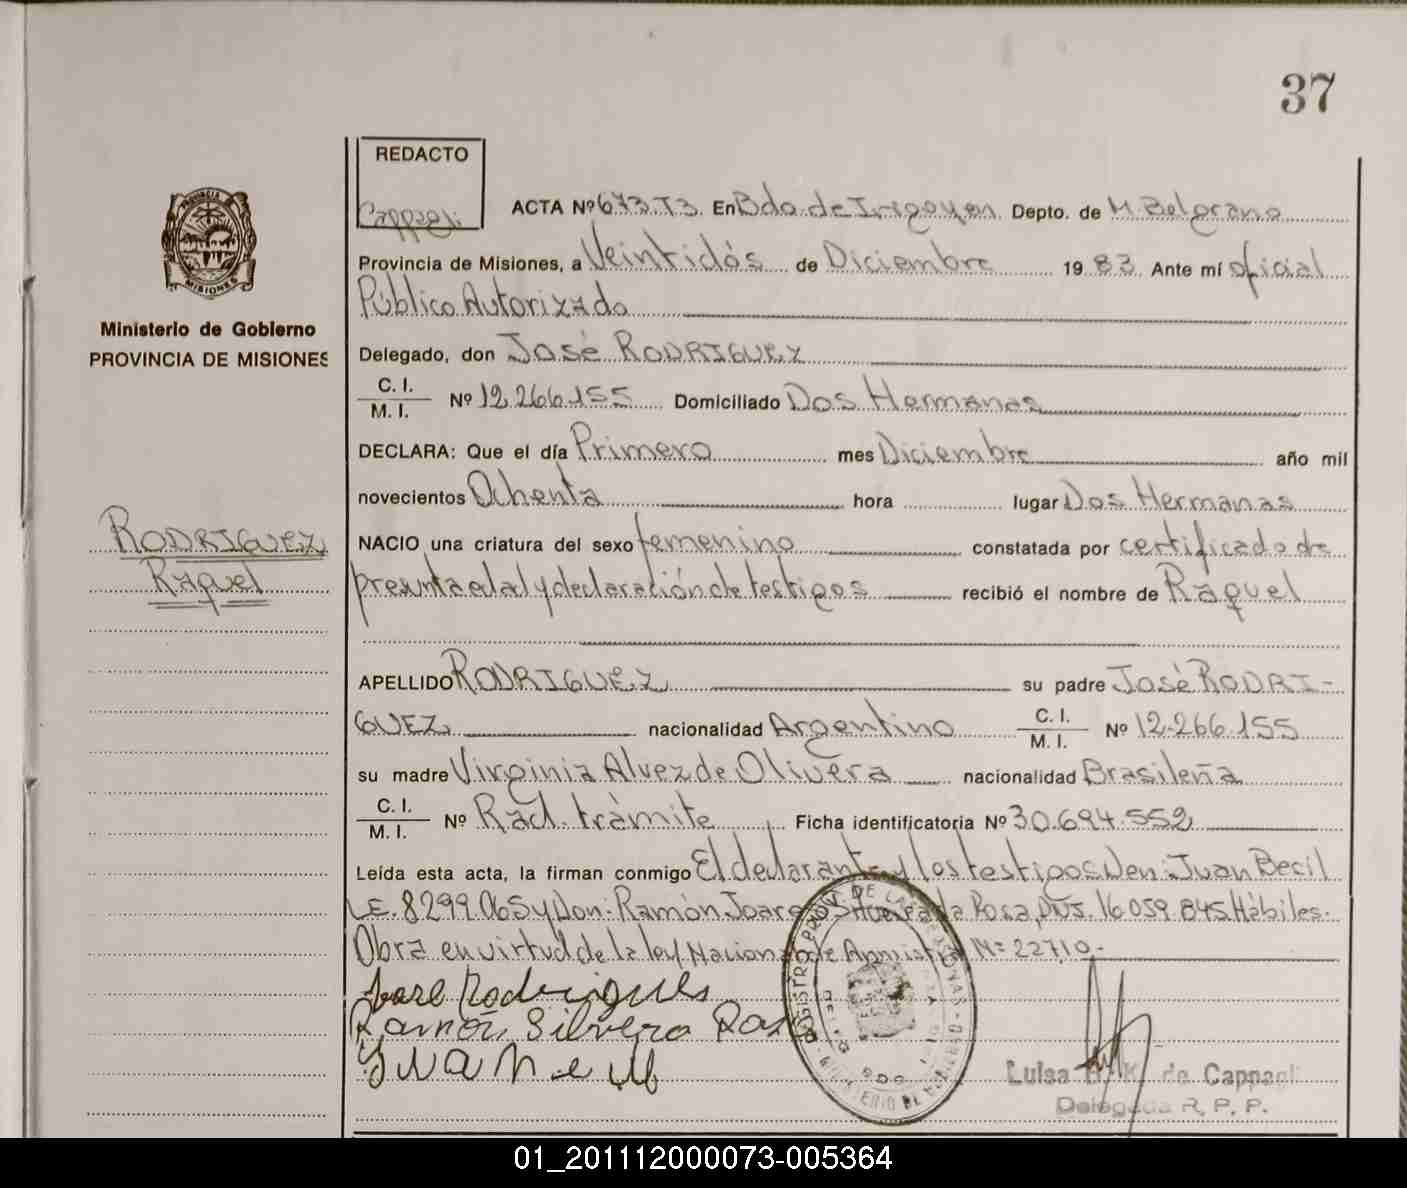 37
REDACTO
Cappagli
ACTA Nº 673.T3. En Bdo. de Irigoyen Depto. de M. Belgrano
Provincia de Misiones, a Veintidós de Diciembre 1983. Ante mí oficial
Público Autorizado
Delegado, don José RODRIGUEZ
C. I.
M. I.
Nº 12.266.155 Domiciliado Dos Hermanas
DECLARA: Que el día Primero mes Diciembre año mil
novecientos Ochenta hora lugar Dos Hermanas
NACIO una criatura del sexo femenino constatada por certificado de
presunta edad y declaración de testigos recibió el nombre de Raquel
APELLIDO RODRIGUEZ su padre José RODRI-
GUEZ nacionalidad Argentino C. I. M. I. Nº 12.266.155
su madre Virginia Alvez de Olivera nacionalidad Brasileña
C. I.
M. I.
Nº Rad. trámite Ficha identificatoria Nº 30.694.552
Leída esta acta, la firman conmigo El declarante y los testigos Den: Juan Becil
L.E. 8299.065 y Don: Ramón Da Rosa, DNI. 16.059.845 Hábiles.
Obra en virtud de la ley Nacional de Amnistía Nº 22710.-
Jose Rodrigues
Ramón Silvero
Luisa K. de Cappagli
Delegada R. P. P.
PROVINCIA
MISIONES
Ministerio de Gobierno
PROVINCIA DE MISIONES
RODRIGUEZ
Raquel
REGISTRO PROV. DE LAS PERSONAS
MINISTERIO DE GOBIERNO
01_201112000073-005364